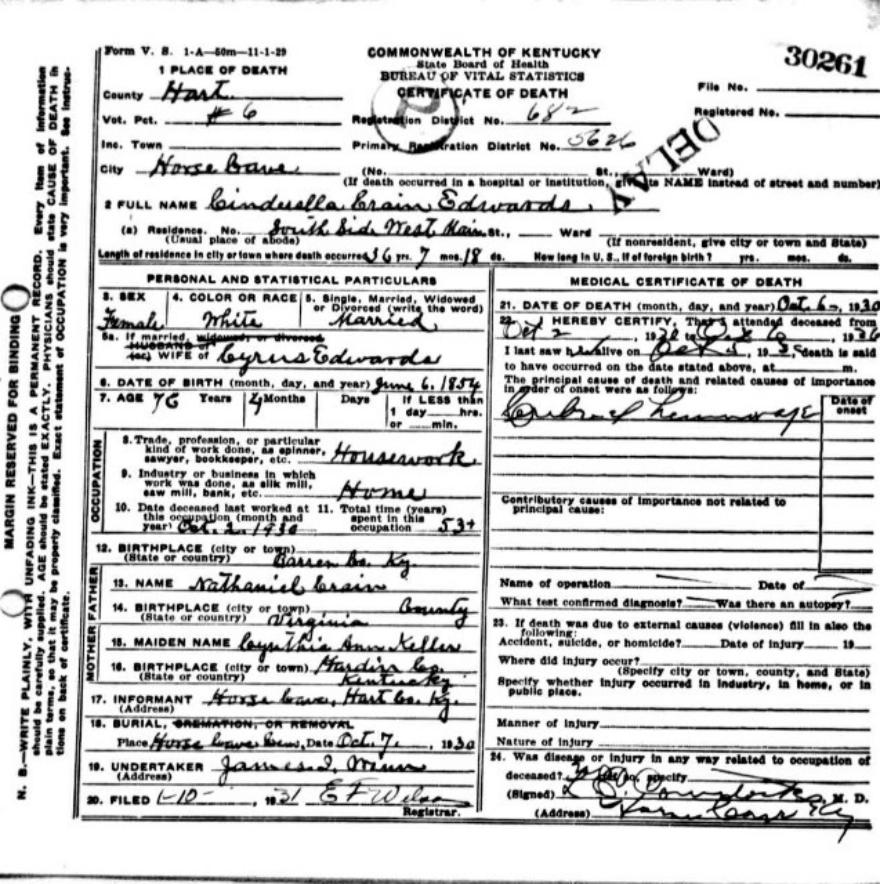 Form V. S. 1-A—50m—11-1-29
COMMONWEALTH OF KENTUCKY
State Board of Health
BUREAU OF VITAL STATISTICS
CERTIFICATE OF DEATH
30261
1 PLACE OF DEATH
County Hart
Vot. Pct. #6
Inc. Town
City Horse Cave
File No.
Registered No.
Registration District No. 682
Primary Registration District No. 5626
DELAY
(No. St., Ward)
(If death occurred in a hospital or institution, give its NAME instead of street and number)
2 FULL NAME Cinderella Crain Edwards
(a) Residence. No. South Side West Main St., Ward
(Usual place of abode) (If nonresident, give city or town and State)
Length of residence in city or town where death occurred 36 yrs. 7 mos. 18 ds. How long in U. S., if of foreign birth? yrs. mos. ds.
PERSONAL AND STATISTICAL PARTICULARS
3. SEX 4. COLOR OR RACE 5. Single, Married, Widowed
or Divorced (write the word)
Female White Married
5a. If married, widowed, or divorced
HUSBAND of
(or) WIFE of Cyrus Edwards
6. DATE OF BIRTH (month, day, and year) June 6. 1854
7. AGE 76 Years 4 Months Days If LESS than
1 day hrs.
or min.
OCCUPATION
8. Trade, profession, or particular
kind of work done, as spinner,
sawyer, bookkeeper, etc. Housework
9. Industry or business in which
work was done, as silk mill,
saw mill, bank, etc. Home
10. Date deceased last worked at 11. Total time (years)
this occupation (month and spent in this
year) Oct. 2. 1930 occupation 53+
12. BIRTHPLACE (city or town)
(State or country) Barren Co. Ky.
FATHER
13. NAME Nathaniel Crain
14. BIRTHPLACE (city or town) County
(State or country) Virginia
MOTHER
15. MAIDEN NAME Cynthia Ann Keller
16. BIRTHPLACE (city or town) Hardin Co.
(State or country) Kentucky
17. INFORMANT Horse Cave, Hart Co. Ky.
(Address)
18. BURIAL, CREMATION, OR REMOVAL
Place Horse Cave Cem, Date Oct. 7. 1930
19. UNDERTAKER James
(Address)
20. FILED 1-10-, 1931 E F Wilson
Registrar.
MEDICAL CERTIFICATE OF DEATH
21. DATE OF DEATH (month, day, and year) Oct. 6-, 1930
22. I HEREBY CERTIFY, That I attended deceased from
Oct 2, 1930 to Oct 6, 1930
I last saw her alive on Oct 5, 1930, death is said
to have occurred on the date stated above, at m.
The principal cause of death and related causes of importance
in order of onset were as follows:
Date of
onset
Cerebral
Contributory causes of importance not related to
principal cause:
Name of operation Date of
What test confirmed diagnosis? Was there an autopsy?
23. If death was due to external causes (violence) fill in also the
following:
Accident, suicide, or homicide? Date of injury 19
Where did injury occur?
(Specify city or town, county, and State)
Specify whether injury occurred in industry, in home, or in
public place.
Manner of injury
Nature of injury
24. Was disease or injury in any way related to occupation of
deceased? If so, specify
(Signed) M. D.
(Address) Horse Cave Ky
MARGIN RESERVED FOR BINDING
N. B.—WRITE PLAINLY, WITH UNFADING INK—THIS IS A PERMANENT RECORD. Every item of information
should be carefully supplied. AGE should be stated EXACTLY. PHYSICIANS should state CAUSE OF DEATH in
plain terms, so that it may be properly classified. Exact statement of OCCUPATION is very important. See instruc-
tions on back of certificate.